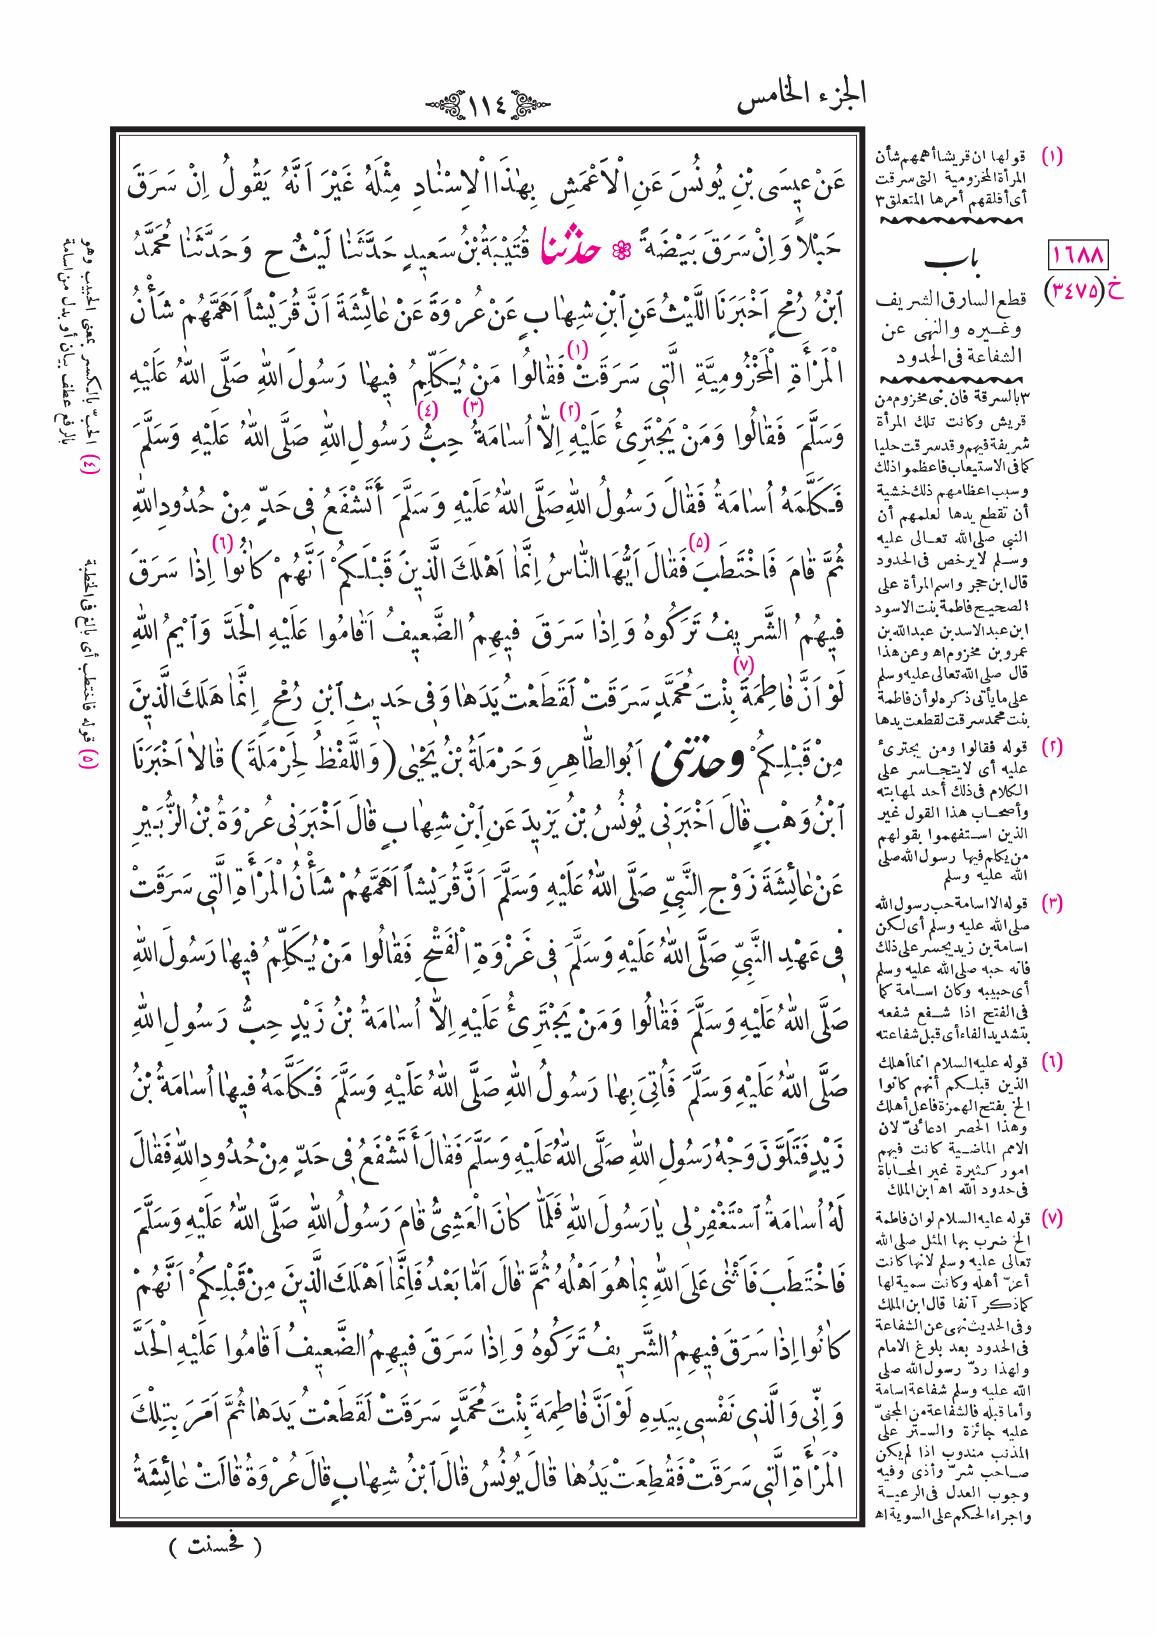 الجزء الخامس
١١٤
عَنْ عِيسَى بْنِ يُونُسَ عَنِ الْاَعْمَشِ بِهٰذَا الْاِسْنَادِ مِثْلَهُ غَيْرَ اَنَّهُ يَقُولُ اِنْ سَرَقَ
حَبْلاً وَ اِنْ سَرَقَ بَيْضَةً ❁ حدثنا قُتَيْبَةُ بْنُ سَعِيدٍ حَدَّثَنَا لَيْثٌ ح وَحَدَّثَنَا مُحَمَّدُ
ابْنُ رُمْحٍ اَخْبَرَنَا اللَّيْثُ عَنِ ابْنِ شِهَابٍ عَنْ عُرْوَةَ عَنْ عَائِشَةَ اَنَّ قُرَيْشاً اَهَمَّهُمْ شَأْنُ
الْمَرْأَةِ الْمَخْزُومِيَّةِ الَّتِي سَرَقَتْ (١) فَقَالُوا مَنْ يُكَلِّمُ فِيهَا رَسُولَ اللهِ صَلَّى اللهُ عَلَيْهِ
وَسَلَّمَ فَقَالُوا وَمَنْ يَجْتَرِئُ عَلَيْهِ (٢) اِلاَّ اُسَامَةُ (٣) حِبُّ (٤) رَسُولِ اللهِ صَلَّى اللهُ عَلَيْهِ وَسَلَّمَ
فَكَلَّمَهُ اُسَامَةُ فَقَالَ رَسُولُ اللهِ صَلَّى اللهُ عَلَيْهِ وَسَلَّمَ أَتَشْفَعُ فِى حَدٍّ مِنْ حُدُودِ اللهِ
ثُمَّ قَامَ فَاخْتَطَبَ (٥) فَقَالَ اَيُّهَا النَّاسُ اِنَّمَا اَهْلَكَ الَّذِينَ قَبْلَكُمْ اَنَّهُمْ كَانُوا (٦) اِذَا سَرَقَ
فِيهِمُ الشَّرِيفُ تَرَكُوهُ وَ اِذَا سَرَقَ فِيهِمُ الضَّعِيفُ اَقَامُوا عَلَيْهِ الْحَدَّ وَاَيْمُ اللهِ
لَوْ اَنَّ فَاطِمَةَ (٧) بِنْتَ مُحَمَّدٍ سَرَقَتْ لَقَطَعْتُ يَدَهَا وَفِى حَدِيثِ ابْنِ رُمْحٍ اِنَّمَا هَلَكَ الَّذِينَ
مِنْ قَبْلِكُمْ وحدثنى اَبُو الطَّاهِرِ وَحَرْمَلَةُ بْنُ يَحْيٰى (وَاللَّفْظُ لِحَرْمَلَةَ) قَالاَ اَخْبَرَنَا
ابْنُ وَهْبٍ قَالَ اَخْبَرَنِى يُونُسُ بْنُ يَزِيدَ عَنِ ابْنِ شِهَابٍ قَالَ اَخْبَرَنِى عُرْوَةُ بْنُ الزُّبَيْرِ
عَنْ عَائِشَةَ زَوْجِ النَّبِيِّ صَلَّى اللهُ عَلَيْهِ وَسَلَّمَ اَنَّ قُرَيْشاً اَهَمَّهُمْ شَأْنُ الْمَرْأَةِ الَّتِى سَرَقَتْ
فِى عَهْدِ النَّبِيِّ صَلَّى اللهُ عَلَيْهِ وَسَلَّمَ فِى غَزْوَةِ الْفَتْحِ فَقَالُوا مَنْ يُكَلِّمُ فِيهَا رَسُولَ اللهِ
صَلَّى اللهُ عَلَيْهِ وَسَلَّمَ فَقَالُوا وَمَنْ يَجْتَرِئُ عَلَيْهِ اِلاَّ اُسَامَةُ بْنُ زَيْدٍ حِبُّ رَسُولِ اللهِ
صَلَّى اللهُ عَلَيْهِ وَسَلَّمَ فَاُتِىَ بِهَا رَسُولُ اللهِ صَلَّى اللهُ عَلَيْهِ وَسَلَّمَ فَكَلَّمَهُ فِيهَا اُسَامَةُ بْنُ
زَيْدٍ فَتَلَوَّنَ وَجْهُ رَسُولِ اللهِ صَلَّى اللهُ عَلَيْهِ وَسَلَّمَ فَقَالَ أَتَشْفَعُ فِى حَدٍّ مِنْ حُدُودِ اللهِ فَقَالَ
لَهُ اُسَامَةُ اسْتَغْفِرْ لِى يَا رَسُولَ اللهِ فَلَمَّا كَانَ الْعَشِىُّ قَامَ رَسُولُ اللهِ صَلَّى اللهُ عَلَيْهِ وَسَلَّمَ
فَاخْتَطَبَ فَاَثْنٰى عَلَى اللهِ بِمَا هُوَ اَهْلُهُ ثُمَّ قَالَ اَمَّا بَعْدُ فَاِنَّمَا اَهْلَكَ الَّذِينَ مِنْ قَبْلِكُمْ اَنَّهُمْ
كَانُوا اِذَا سَرَقَ فِيهِمُ الشَّرِيفُ تَرَكُوهُ وَ اِذَا سَرَقَ فِيهِمُ الضَّعِيفُ اَقَامُوا عَلَيْهِ الْحَدَّ
وَ اِنِّى وَالَّذِى نَفْسِى بِيَدِهِ لَوْ اَنَّ فَاطِمَةَ بِنْتَ مُحَمَّدٍ سَرَقَتْ لَقَطَعْتُ يَدَهَا ثُمَّ اَمَرَ بِتِلْكَ
الْمَرْأَةِ الَّتِى سَرَقَتْ فَقُطِعَتْ يَدُهَا قَالَ يُونُسُ قَالَ ابْنُ شِهَابٍ قَالَ عُرْوَةُ قَالَتْ عَائِشَةُ
( فحسنت )
(١) قولها ان قريشا أهمهم شأن
المرأة المخزومية التى سرقت
أى أقلقهم أمرها المتعلق ٣
١٦٨٨
خ (٣٤٧٥)
باب
قطع السارق الشريف
وغيره والنهى عن
الشفاعة فى الحدود
٣ بالسرقة فان بنى مخزوم من
قريش وكانت تلك المرأة
شريفة فيهم وقد سرقت حليا
كما فى الاستيعاب فاعظموا ذلك
وسبب اعظامهم ذلك خشية
أن تقطع يدها لعلمهم أن
النبى صلى الله تعالى عليه
وسلم لا يرخص فى الحدود
قال ابن حجر واسم المرأة على
الصحيح فاطمة بنت الاسود
ابن عبد الاسد بن عبد الله بن
عمرو بن مخزوم اه وعن هذا
قال صلى الله تعالى عليه وسلم
على ما يأتى ذكره لو أن فاطمة
بنت محمد سرقت لقطعت يدها
(٢) قوله فقالوا ومن يجترئ
عليه أى لا يتجاسر على
الكلام فى ذلك أحد لمهابته
وأصحاب هذا القول غير
الذين استفهموا بقولهم
من يكلم فيها رسول الله صلى
الله عليه وسلم
(٣) قوله الا اسامة حب رسول الله
صلى الله عليه وسلم أى لكن
اسامة بن زيد يجسر على ذلك
فانه حبه صلى الله عليه وسلم
أى حبيبه وكان اسامة كما
فى الفتح اذا شفع شفعه
بتشديد الفاء أى قبل شفاعته
(٦) قوله عليه السلام انما أهلك
الذين قبلكم أنهم كانوا
الخ بفتح الهمزة فاعل أهلك
وهذا الحصر ادعائىّ لان
الامم الماضية كانت فيهم
امور كثيرة غير المحاباة
فى حدود الله اه ابن الملك
(٧) قوله عليه السلام لو ان فاطمة
الخ ضرب بها المثل صلى الله
تعالى عليه وسلم لانها كانت
أعزّ أهله وكانت سمية لها
كما ذكر آنفا قال ابن الملك
وفى الحديث نهى عن الشفاعة
فى الحدود بعد بلوغ الامام
ولهذا ردّ رسول الله صلى
الله عليه وسلم شفاعة اسامة
وأما قبله فالشفاعة من المجنىّ
عليه جائزة والستر على
المذنب مندوب اذا لم يكن
صاحب شرّ وأذى وفيه
وجوب العدل فى الرعية
واجراء الحكم على السوية اه
(٤) الحبّ بالكسر بمعنى الحبيب وهو
بالرفع عطف بيان أو بدل من اسامة
(٥) قوله فاختطب أى بالغ فى الخطبة